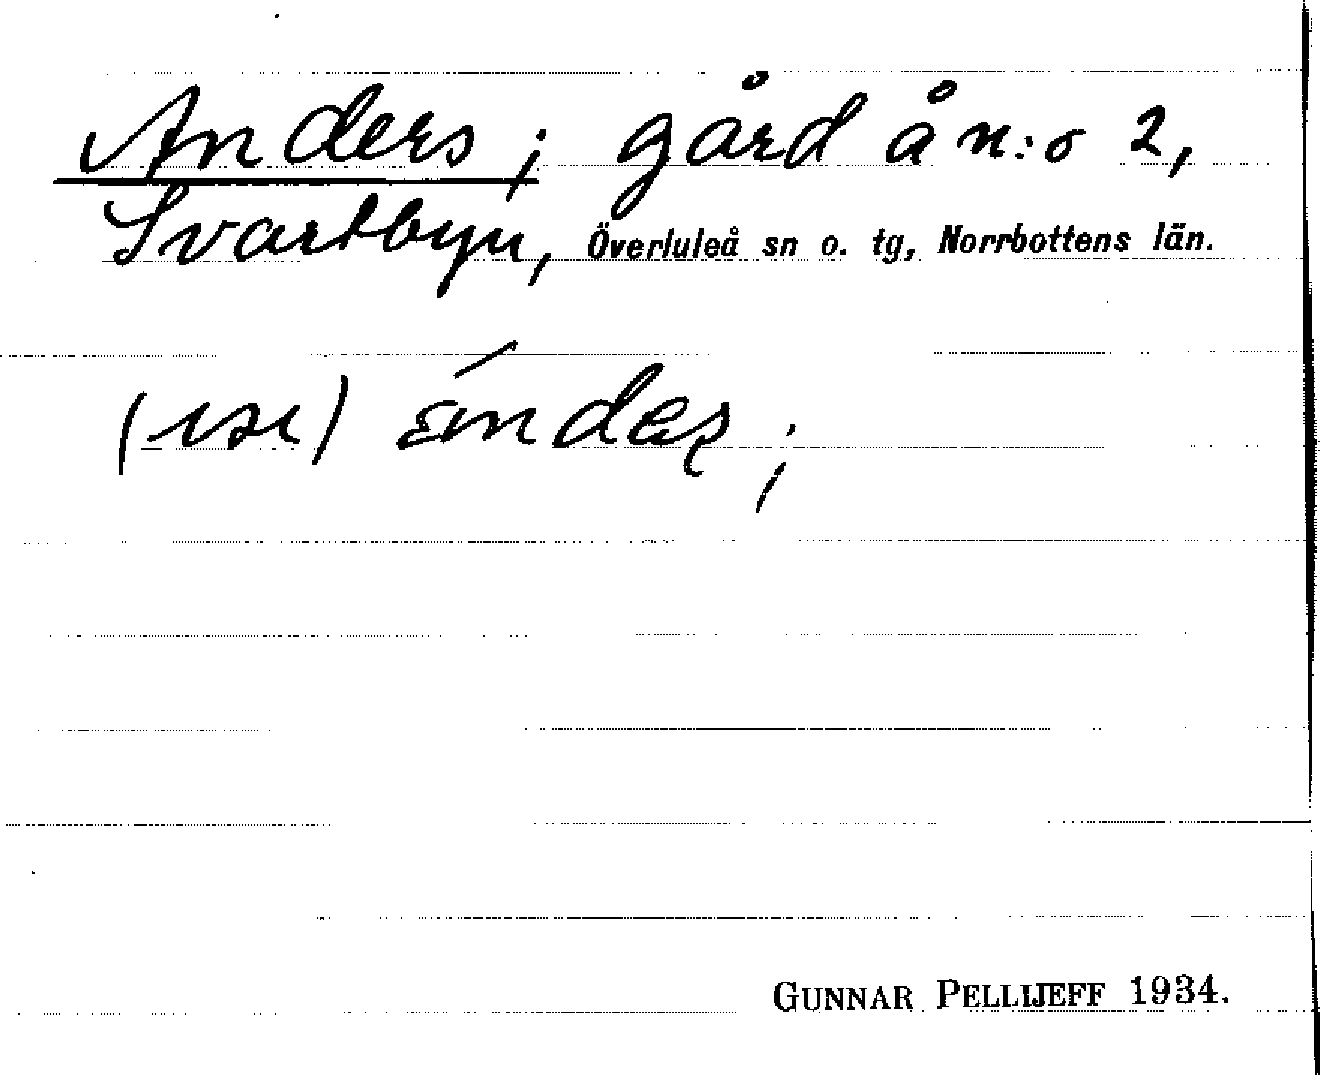 Anders; gård å n:o 2,
Svartbyn, Överluleå sn o. tg, Norrbottens län.
GUNNAR PELLIJEFF 1934.